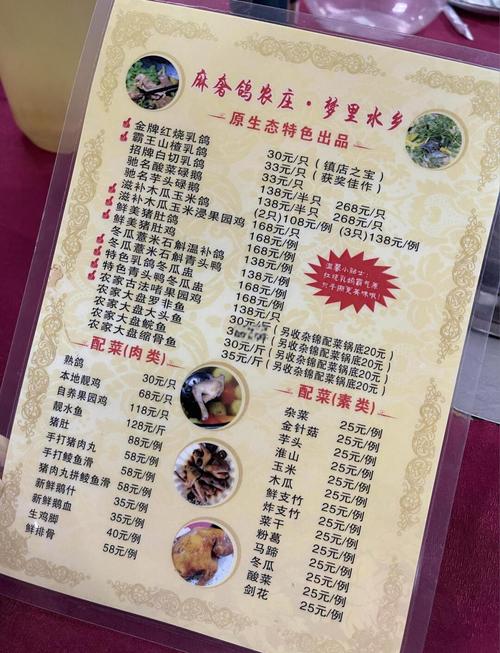 麻奢鸽农庄·梦里水乡
原生态特色出品
金牌红烧乳鸽 30元/只(镇店之宝)
霸王山楂乳鸽 33元/只(获奖佳作)
招牌白切乳鸽 33元/只
驰名酸菜碌鹅 138元/半只 268元/只
驰名芋头碌鹅 138元/半只 268元/只
滋补木瓜玉米鸽 (2只)108元/例 (3只)138元/例
滋补木瓜玉米浸果园鸡 168元/例
鲜美猪肚鸽 168元/例
鲜美猪肚鸡 168元/例
冬瓜薏米石斛温补鸽 138元/例
冬瓜薏米石斛青头鸭 168元/例
特色乳鸽冬瓜盅 138元/例
特色青头鸭冬瓜盅 168元/例
农家古法啫果园鸡 138元/只
农家大盘罗非鱼 30元/斤(另收杂锦配菜锅底20元)
农家大盘大头鱼 元/斤(另收杂锦配菜锅底20元)
农家大盘鲩鱼 30元/斤(另收杂锦配菜锅底20元)
农家大盘缩骨鱼 35元/斤(另收杂锦配菜锅底20元)
温馨小贴士:
红烧乳鸽霸气原
配菜(肉类)
熟鸽 30元/只
本地靓鸡 68元/只
自养果园鸡 118元/只
靓水鱼 128元/斤
猪肚 88元/例
手打猪肉丸 58元/例
手打鲮鱼滑 58元/例
猪肉丸拼鲮鱼滑 58元/例
新鲜鹅什 35元/例
新鲜鹅血 35元/例
生鸡脚 40元/例
鲜排骨 58元/例
配菜(素类)
杂菜 25元/例
金针菇 25元/例
芋头 25元/例
淮山 25元/例
玉米 25元/例
木瓜 25元/例
鲜支竹 25元/例
炸支竹 25元/例
菜干 25元/例
粉葛 25元/例
马蹄 25元/例
冬瓜 25元/例
酸菜 25元/例
剑花 25元/例